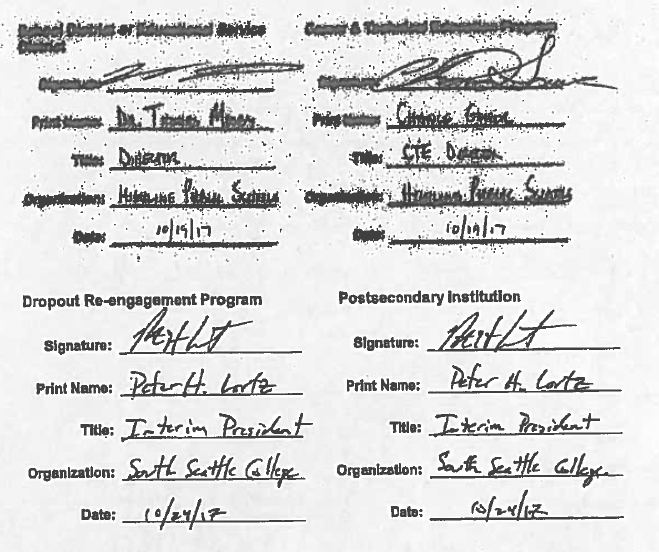 School District or Educational Service District
Signature:
Print Name: Dr.
Title: Director
Organization: Highline Public Schools
Date: 10/19/17
Career & Technical Education Program
Signature:
Print Name: Charlie
Title: CTE Director
Organization: Highline Public Schools
Date: 10/19/17
Dropout Re-engagement Program
Signature:
Print Name: Peter H. Lortz
Title: Interim President
Organization: South Seattle College
Date: 10/24/17
Postsecondary Institution
Signature:
Print Name: Peter H. Lortz
Title: Interim President
Organization: South Seattle College
Date: 10/24/17